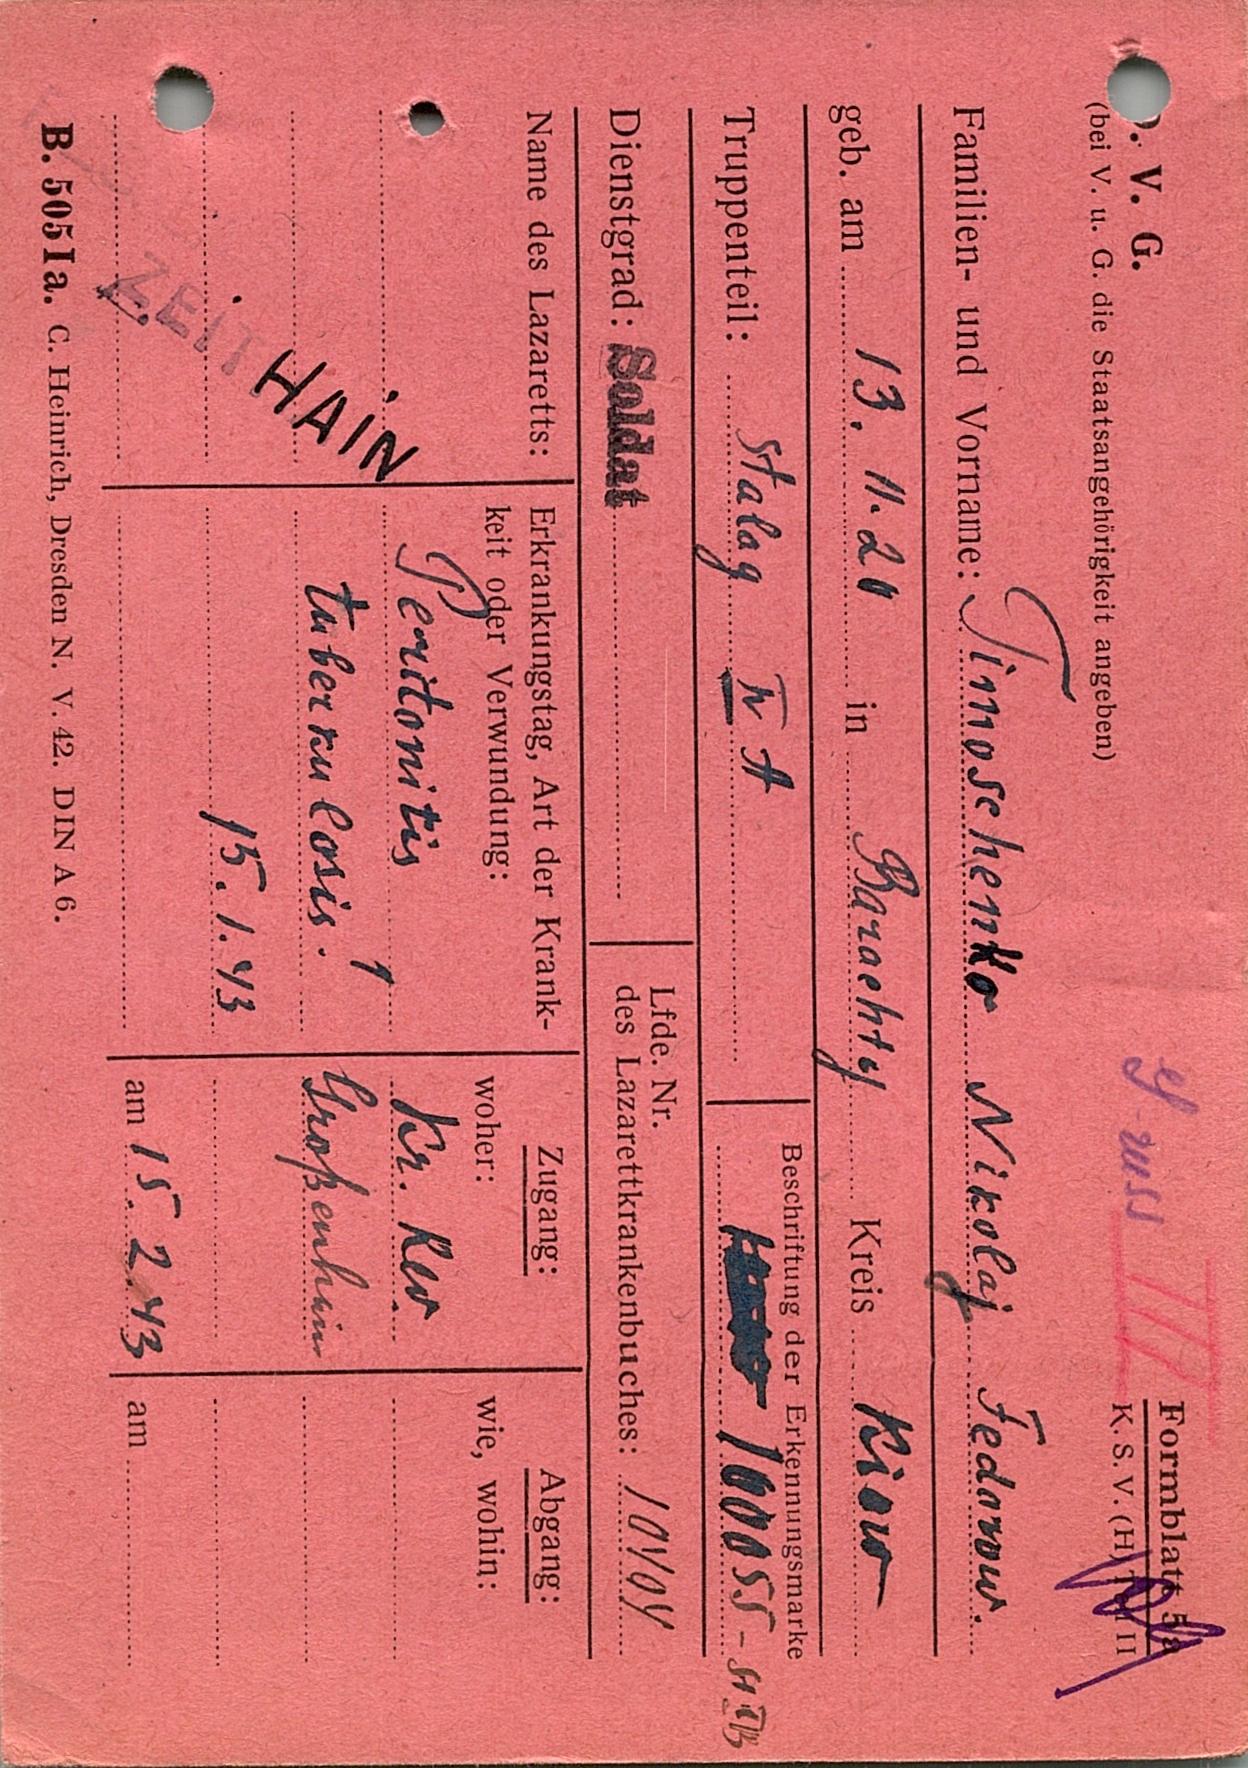 V. G.
(bei V. u. G. die Staatsangehörigkeit angeben)
Formblatt 5a
K. S. V. (H) Teil II
Familien- und Vorname: Timoschenko Nikolaj Fedorow.
geb. am 13. 11. 20 in Barachty Kreis Kiow
Truppenteil: Stalag IV A
Beschriftung der Erkennungsmarke
100055-
Dienstgrad: Soldat
Lfde. Nr.
des Lazarettkrankenbuches: 10404
Name des Lazaretts:
ZEITHAIN
Erkrankungstag, Art der Krank-
keit oder Verwundung:
Peritonitis
tuberkulosis.
15. 1. 43
Zugang:
woher:
Kr. Rev.
Großenhain
am 15. 2. 43
Abgang:
wie, wohin:
am
B. 5051a. C. Heinrich, Dresden N. V. 42. DIN A 6.